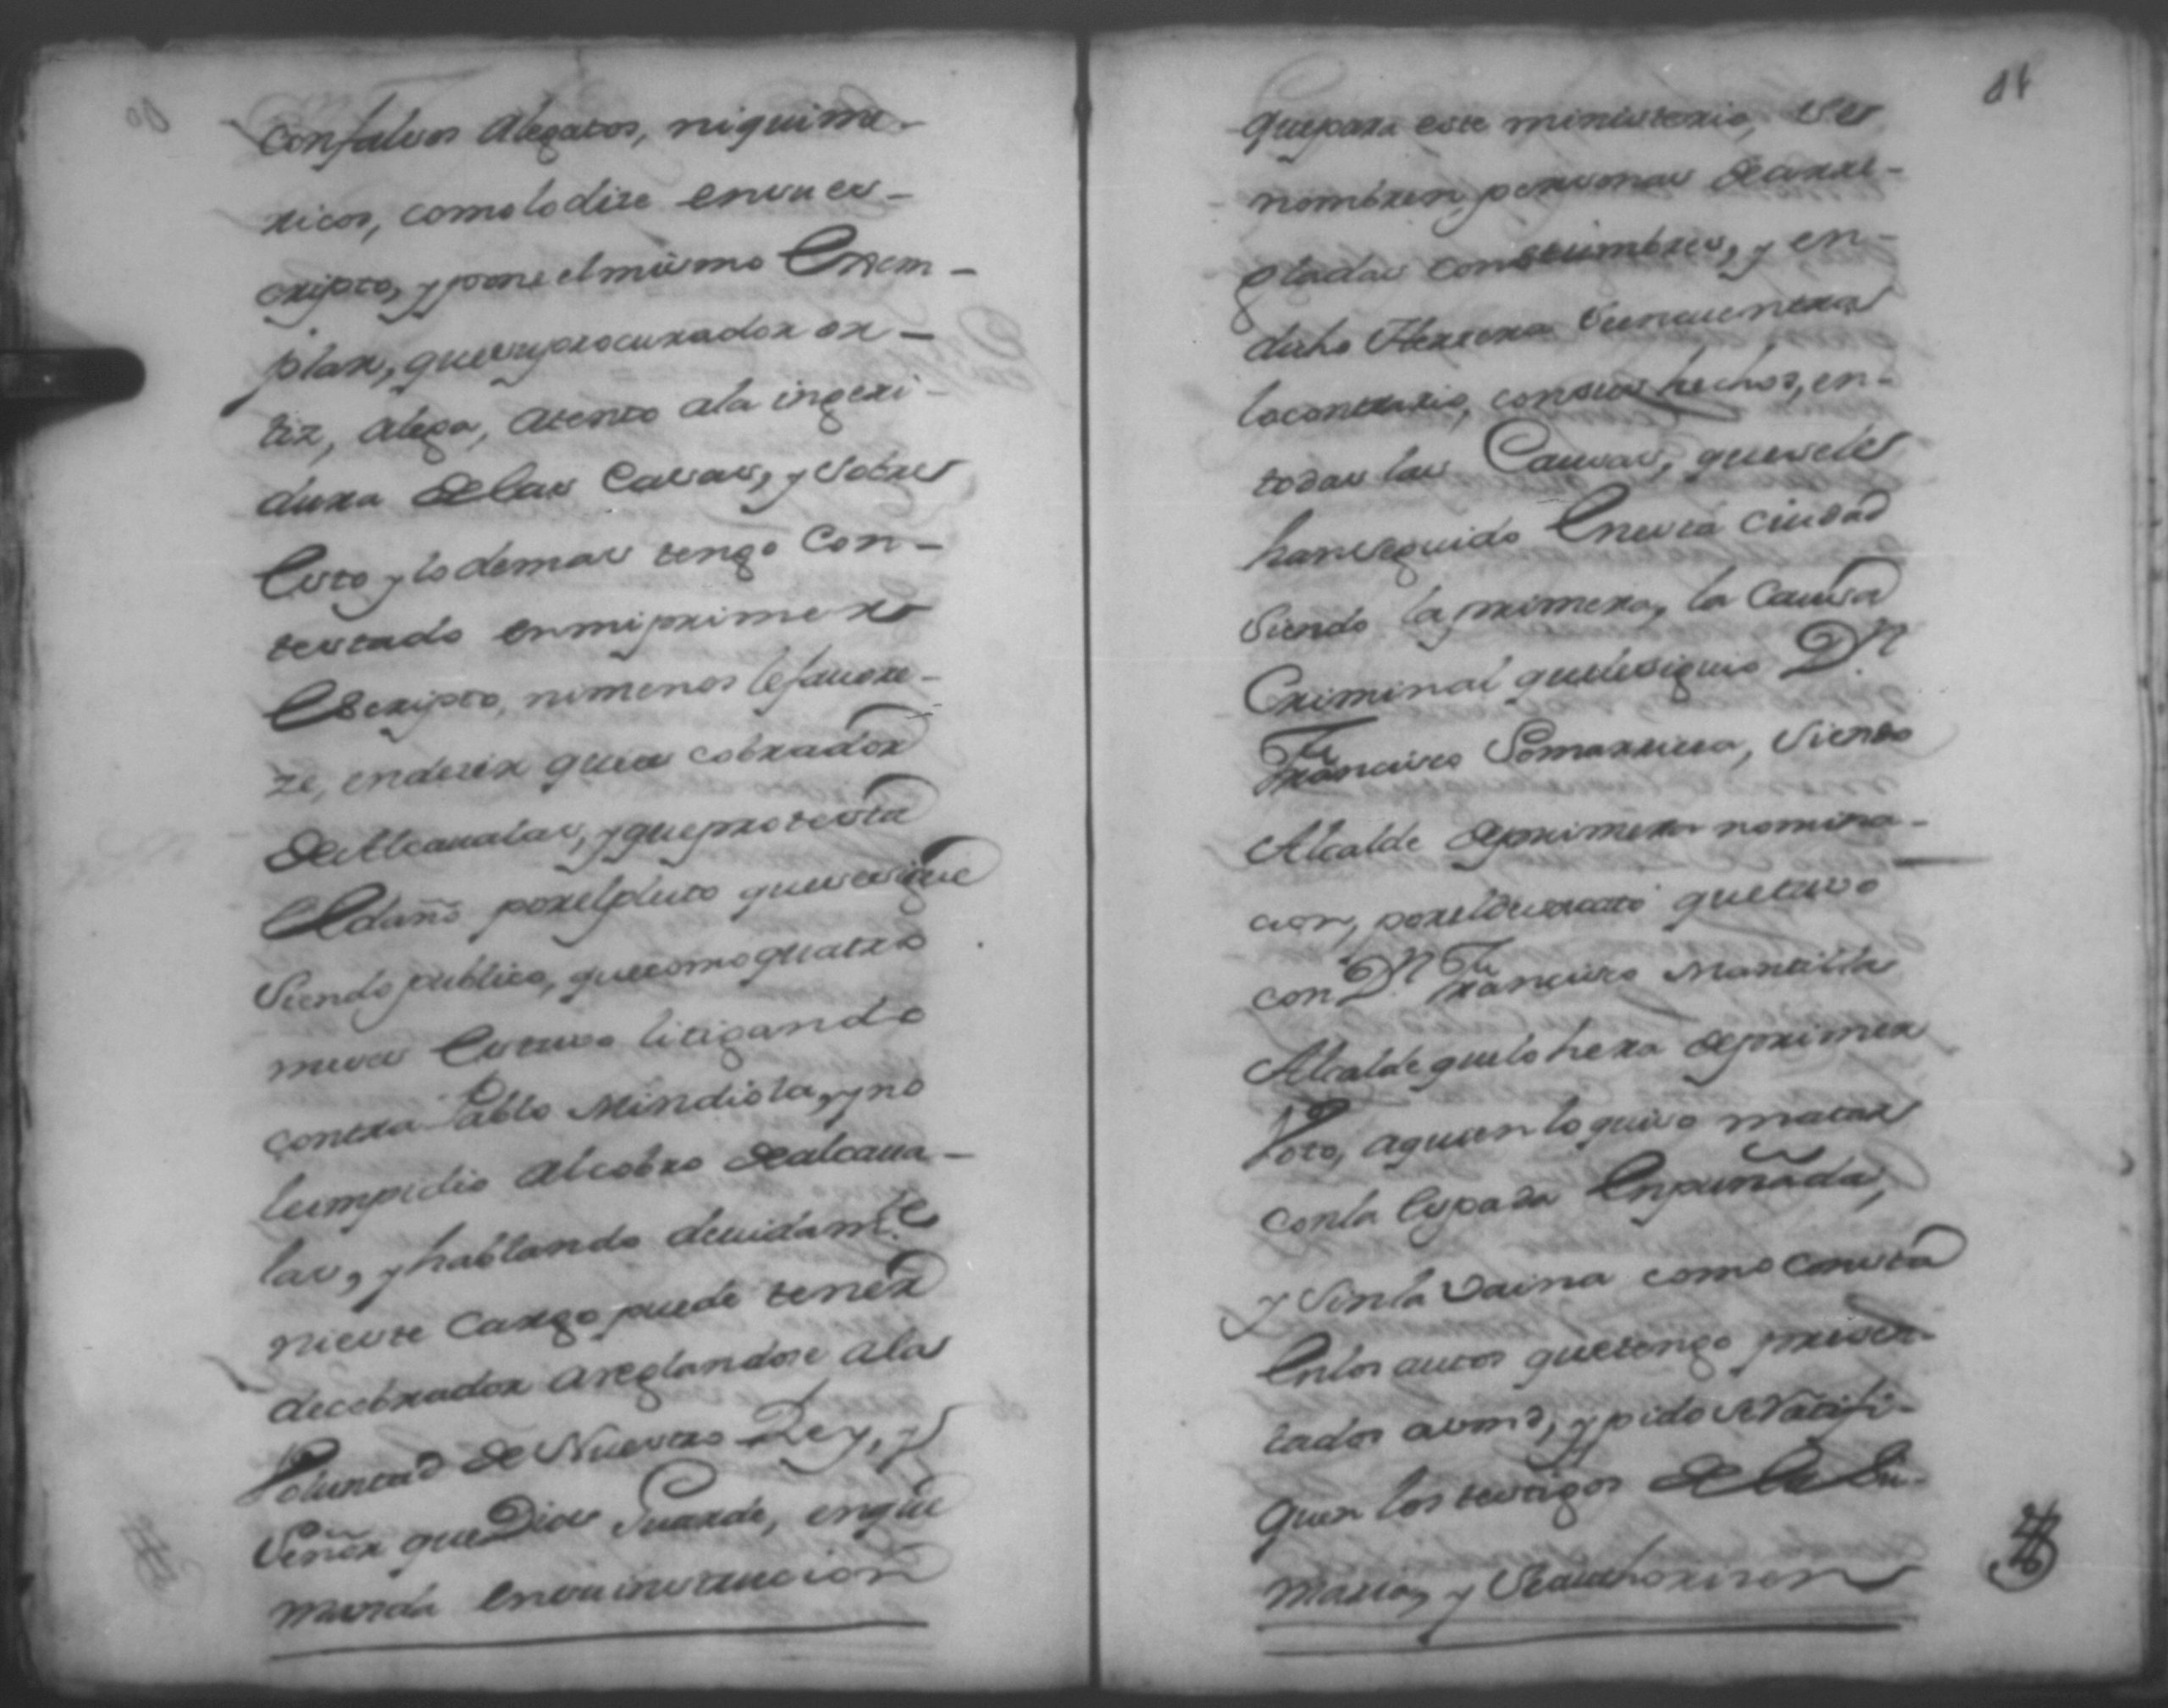 con falsos alegatos, niquime-
ricos, como lo dise en su es-
cripto, y pone el mismo Exem-
plar, que su procurador or-
tiz, alega, atento ala ingeri-
dura delas Casas, y sobre
Esto y lo demas tengo Con-
testado en mi primer
Escripto, ni menos le favore-
ze, en desir que es cobrador
de Alcavalas, y que protesta
El daño por el pleito que se sigue
siendo publico, que como quatro
meses Estuvo litigando
contra Pablo Mindiola, y no
le impidio al cobro de alcava-
las, y hablando devidam.te
ni este Cargo puede tener
de cobrador areglandose ala
Voluntad de Nuestro Rey, y
Señor que Dios Guarde, en que
manda en su instrucion
11
que para este ministerio, se
nombren personas de arre-
gladas constumbres, y en
dicho Herrera se encuentra
lo contrario, con sus hechos, en
todas las Causas, que se le
han seguido En esta ciudad
siendo la primera, la Causa
Criminal que le siguio D.n
Francisco Somarriva, siendo
Alcalde de primera nomina-
cion, por el desacato que tuvo
con D.n Francisco Mantilla
Alcalde que lo hera de primer
Voto, a quien lo quiso matar
con la Espada Enpuñada,
y sin la vaina como consta
En los autos que tengo presen-
tados a vmd, y pido se ratifi-
quen los testigos de la Su-
maria, y se authorisen